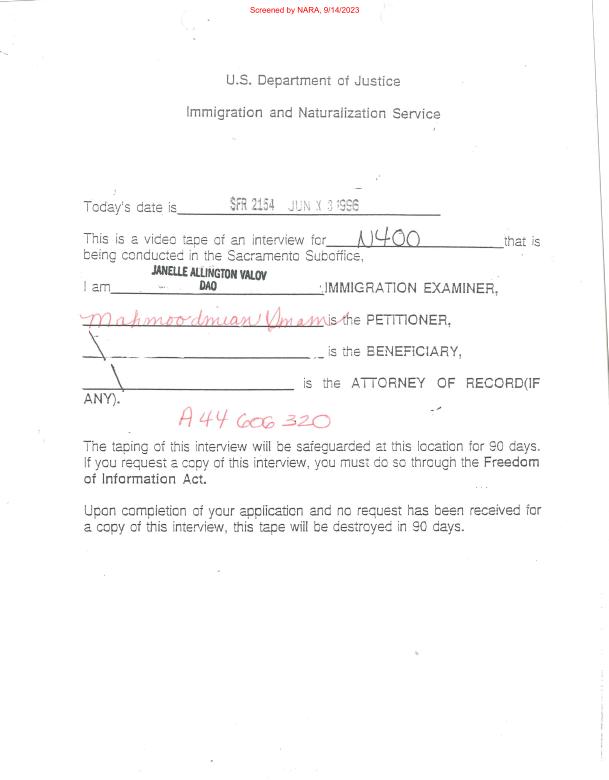 Screened by NARA, 9/14/2023
U.S. Department of Justice
Immigration and Naturalization Service
Today's date is SFR 2154 JUN X 3 1996
This is a video tape of an interview for N400 that is
being conducted in the Sacramento Suboffice,
JANELLE ALLINGTON VALOV
I am DAO IMMIGRATION EXAMINER,
Mahmoodmian is the PETITIONER,
is the BENEFICIARY,
is the ATTORNEY OF RECORD(IF
ANY).
A44 606 320
The taping of this interview will be safeguarded at this location for 90 days.
If you request a copy of this interview, you must do so through the Freedom
of Information Act.
Upon completion of your application and no request has been received for
a copy of this interview, this tape will be destroyed in 90 days.